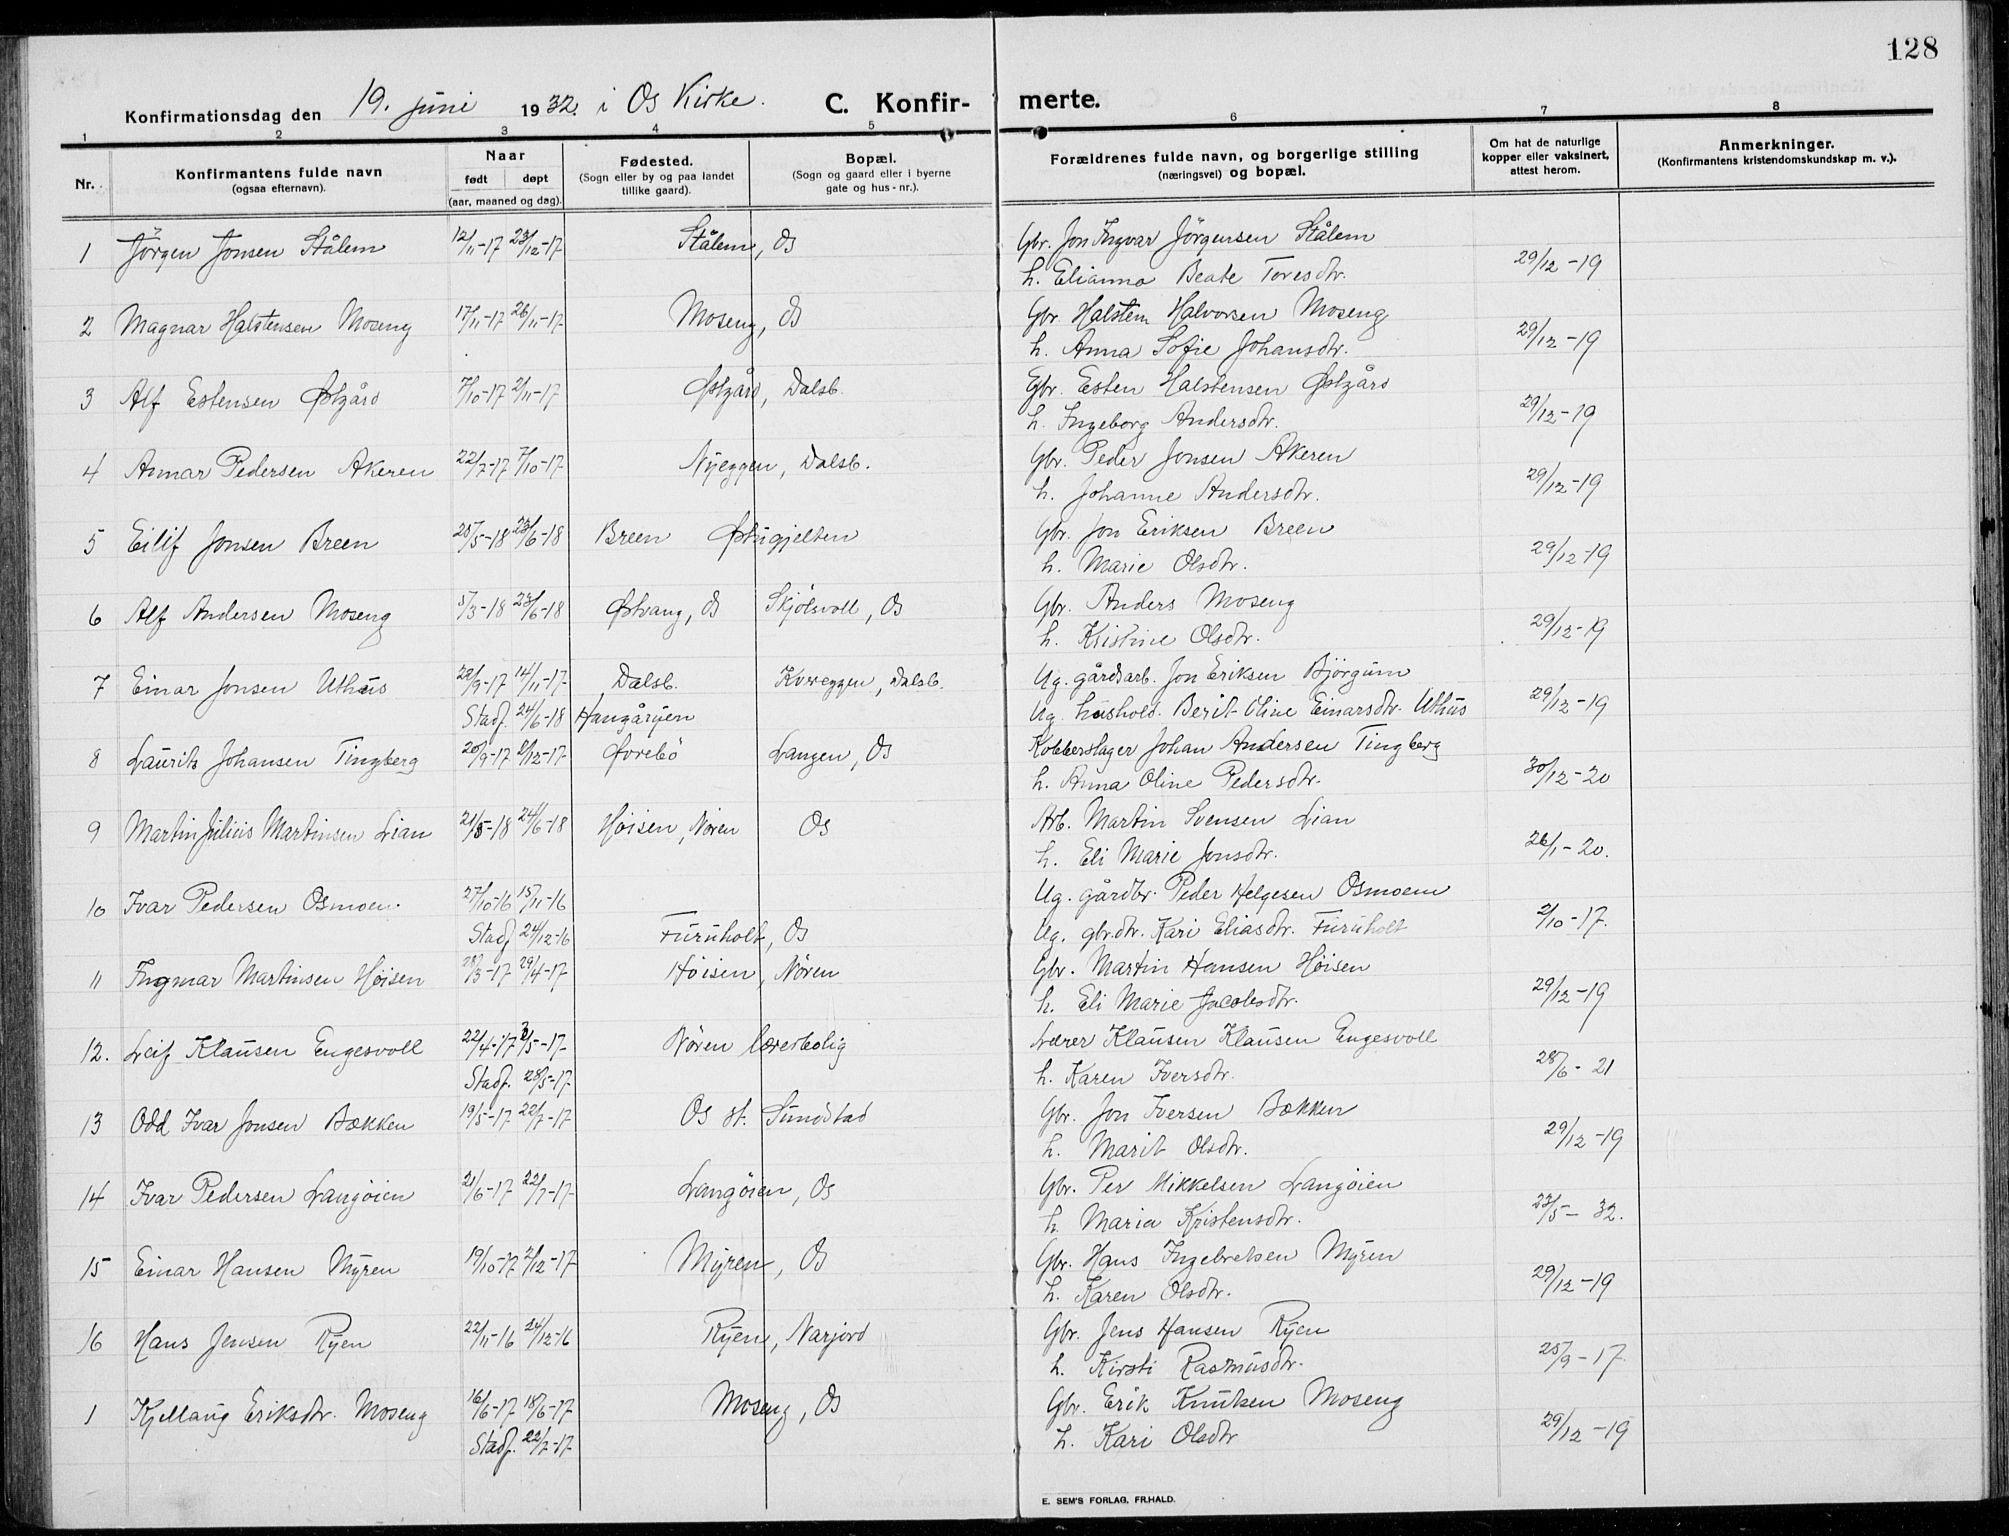 128
Konfirmationsdag den 19. juni 1932 i Os Kirke. C. Konfirmerte.
1 2 3 4 5 6 7 8
Nr. Konfirmantens fulde navn (ogsaa efternavn). Naar født døpt (aar, maaned og dag). Fødested. (Sogn eller by og paa landet tillike gaard). Bopæl. (Sogn og gaard eller i byerne gate og hus-nr.). Forældrenes fulde navn, og borgerlige stilling (næringsvei) og bopæl. Om hat de naturlige kopper eller vaksinert, attest herom. Anmerkninger. (Konfirmantens kristendomskundskap m. v.).
1 Jörgen Jonsen Stålem 12/11-17 23/12-17 Stålem, Os Gbr. Jon Ingvar Jörgensen Stålem
h. Elianna Beate Toresdtr. 29/12-19
2 Magnar Halstensen Moseng 17/11-17 26/11-17 Moseng, Os Gbr. Halsten Halvorsen Moseng
h. Anna Sofie Johansdtr. 29/12-19
3 Alf Estensen Østgård 7/10-17 2/11-17 Østgård, Dalsb. Gbr. Esten Halstensen Østgård
h. Ingeborg Andersdtr. 29/12-19
4 Anmar Pedersen Akeren 22/7-17 7/10-17 Nyeggen, Dalsb. Gbr. Peder Jonsen Akeren
h. Johanne Andersdtr. 29/12-19
5 Eilif Jonsen Breen 25/5-18 23/6-18 Breen Østugjelten Gbr. Jon Eriksen Breen
h. Marie Olsdtr. 29/12-19
6 Alf Andersen Moseng 5/3-18 23/6-18 Østvang, Os Skjölsvoll, Os Gbr. Anders Moseng
h. Kristine Olsdtr. 29/12-19
7 Einar Jonsen Uthus 22/9-17 14/11-17 Dalsb. Kvereggen, Dalsb. Ug. gårdarb. Jon Eriksen Bjørgum
Stadf. 24/6-18 Haugåryen Ug. hushold. Berit Oline Einarsdtr. Uthus 29/12-19
8 Laurits Johansen Tingberg 20/9-17 2/12-17 Øvrebö Langen, Os Kobberslager Johan Andersen Tingberg
h. Anna Oline Pedersdtr. 30/12-20
9 Martin Julius Martinsen Lian 21/5-18 24/6-18 Høisen, Nören Os Arb. Martin Svensen Lian
h. Eli Marie Jonsdtr. 26/1-20.
10 Ivar Pedersen Osmoen. 27/10-16 15/11-16 Ug. gårdbr. Peder Helgesen Osmoen
Stadf 24/12-16 Furuholt, Os Ug. gbr.dtr. Kari Eliasdtr. Furuholt 2/10-17.
11 Ingmar Martinsen Høisen 28/3-17 29/4-17 Høisen, Nören Gbr. Martin Hansen Høisen
h. Eli Marie Jacobsdtr. 29/12-19
12. Leif Klausen Engesvoll 22/4-17 3/5-17 Nören lærerbolig Lærer Klausen Klausen Engesvoll
Stadf. 28/5-17 h. Karen Iversdtr. 28/6-21
13 Odd Ivar Jonsen Bækken 19/5-17 22/7-17 Os st. Sundstad Gbr. Jon Iversen Bækken
h. Marit Olsdtr. 29/12-19
14 Ivar Pedersen Langøien 21/6-17 22/7-17 Langøien, Os Gbr. Per Mikkelsen Langøien
h. Maria Kristensdtr. 23/5-32.
15 Einar Hansen Myren 19/10-17 2/12-17 Myren, Os Gbr. Hans Ingebretsen Myren
h. Karen Olsdtr. 29/12-19
16 Hans Jensen Ryen 22/11-16 24/12-16 Ryen, Narjord Gbr. Jens Hansen Ryen
h. Kirsti Rasmusdtr. 25/9-17
1 Kjellaug Eriksdtr. Moseng 16/6-17 18/6-17 Moseng, Os Gbr. Erik Knutsen Moseng
Stadf. 22/7-17 h. Kari Olsdtr 29/12-19
E. SEM'S FORLAG, FR.HALD.